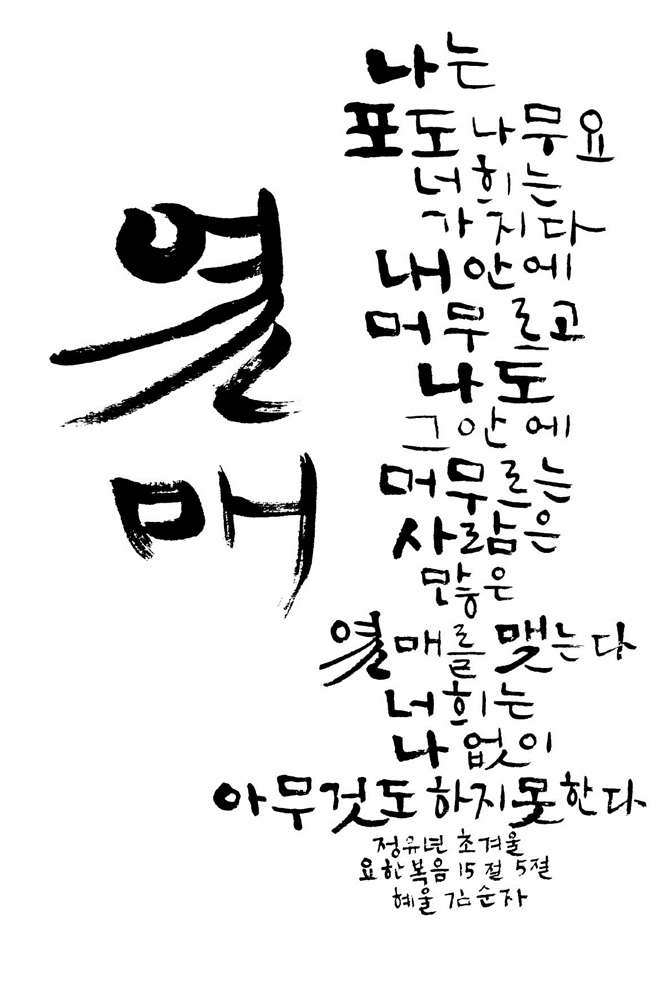 열
매
나는
포도나무요
너희는
가지다
내안에
머무르고
나도
그안에
머무르는
사람은
많은
열매를 맺는다
너희는
나 없이
아무것도 하지 못한다
정유년 초겨울
요한복음 15절 5절
혜울 김순자